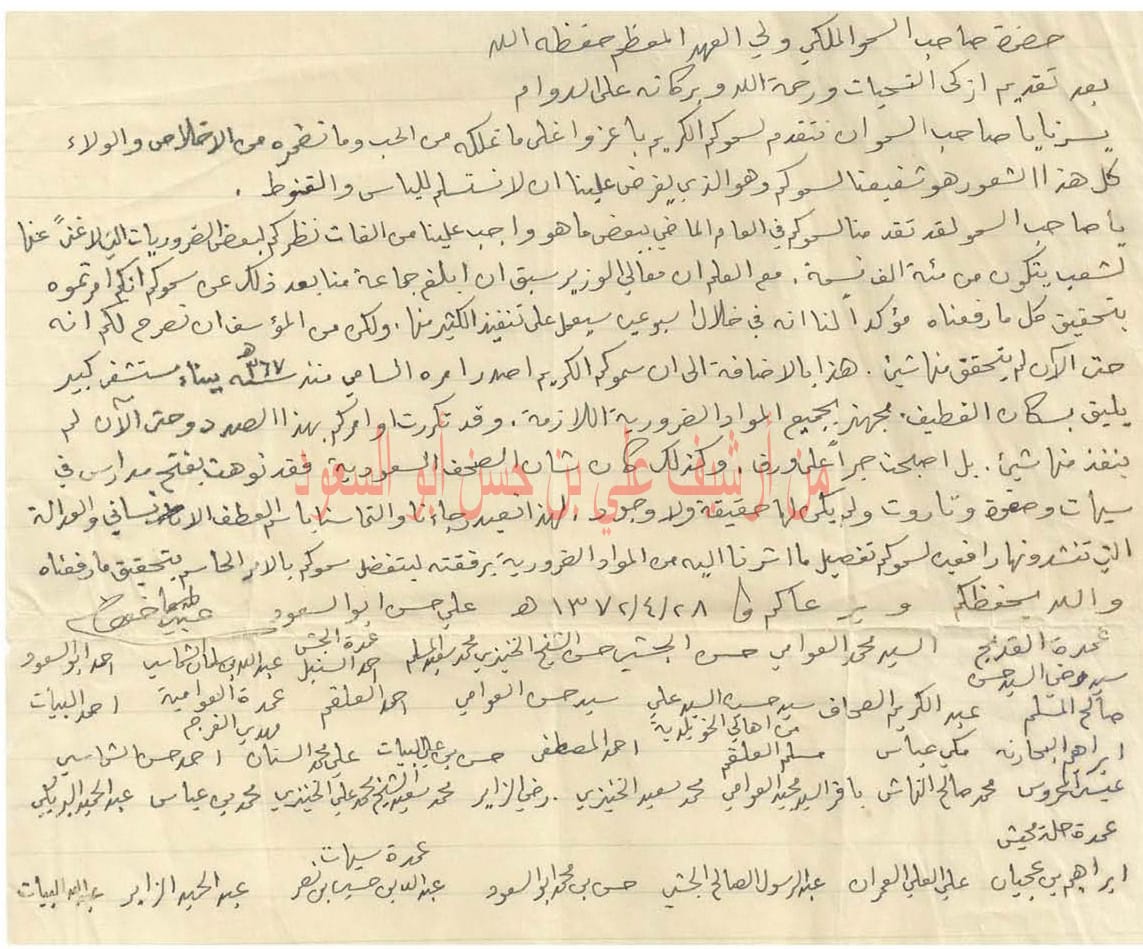 حضرة صاحب السمو الملكي ولي العهد المعظم حفظه الله
بعد تقديم ازكى التحيات ورحمة الله وبركاته على الدوام
يسرنا يا صاحب السمو ان نتقدم لسموكم الكريم باعز واغلى ما نملكه من الحب وما نضمره من الاخلاص والولاء
كل هذا الشعور هو شفيعنا لسموكم وهو الذي يفرض علينا ان لا نستسلم للياس والقنوط .
يا صاحب السمو لقد تقدمنا لسموكم في العام الماضي ببعض ما هو واجب علينا من الفات نظركم لبعض الضروريات التي لا غنىً عنها
لشعب يتكون من مئة الف نسمة . مع العلم ان معالي الوزير سبق ان ابلغ جماعة منا بعد ذلك عن سموكم انكم امرتموه
بتحقيق كل ما رفعناه مؤكداً لنا انه في خلال اسبوعين سيعمل على تنفيذ الكثير منها . ولكن من المؤسف ان نصرح لكم انه
حتى الآن لم يتحقق منها شيئ . هذا بالاضافة الى ان سموكم الكريم اصدر امره السامي منذ سنة ٣٦٧ هـ ببناء مستشفى كبير
يليق بسكان القطيف . مجهز بجميع المواد الضرورية اللازمة . وقد تكررت اوامركم بهذا الصدد وحتى الآن لم
ينفذ منها شيئ . بل اصبحت حبراً على ورق . وكذلك كان شان الصحف السعودية فقد نوهت بفتح مدارس في
سيهات وصفوة وتاروت ولم يكن لها حقيقة ولا وجود . لهذا نعيد رجاءنا والتماسنا باسم العطف الانساني والعدالة
التي تنشدونها رافعين لسموكم تفصيل ما اشرنا اليه من المواد الضرورية برفقته ليتفضل سموكم بالامر الحاسم بتحقيق ما رفعناه
والله يحفظكم ويرعاكم ١٣٧٢/٤/٢٨ هـ علي حسن ابو السعود
عمدة القديح السيد محمد العوامي حسن الجشي حسن الشيخ الخنيزي محمد سعيد المسلم عمدة الجش احمد السنبل عبدالله بن سلمان الشماسي احمد ابو السعود
سيد رضي السيد حسن
صالح المسلم عبد الكريم الصحاف سيد حسن السيد علي من اهالي الخويلدية سيد حسن العوامي احمد العلقم عمدة العوامية مهدي الفرج احمد البيات
ابراهيم البحارنه مكي عباس مسلم العلقم احمد المصطفى حسن بن علي البيات علي محمد السنان احمد حسن الشماسي
عيسى المحروس محمد صالح النهاش باقر السيد مجيد العوامي محمد سعيد الخنيزي . رضي الزاير محمد سعيد الشيخ محمد علي الخنيزي محمد بن عباس عبد الحميد البريكي
عمدة حلة محيش عمدة سيهات
ابراهيم بن عجيان علي العلي العمران عبد الرسول الصالح الجشي حسن بن محمد ابو السعود عبدالله بن حسين بن نصر عبد الحميد الزاير عبدالله البيات
من أرشيف علي بن حسن أبو السعود